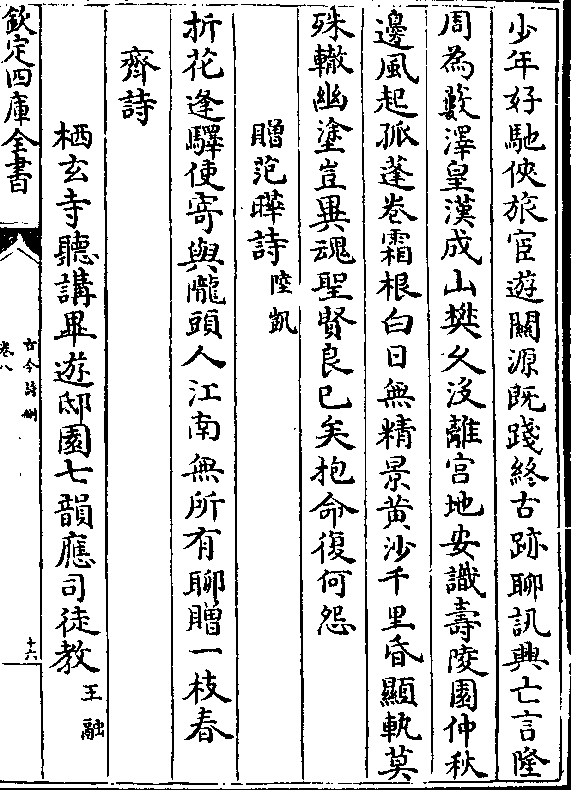 少年好馳俠旅宦遊關源既踐終古跡聊訊興亡言隆
周為藪澤皇漢成山樊久沒離宮地安識壽陵園仲秋
邊風起孤蓬卷霜根白日無精景黄沙千里昏顯軌莫
殊轍幽塗豈異魂聖賢良已矣抱命復何怨
贈范曄詩 陸凱
折花逢驛使寄與隴頭人江南無所有聊贈一枝春
齊詩
栖玄寺聽講畢遊邸園七韻應司徒教 王融
欽定四庫全書
古今詩刪
卷八
十六